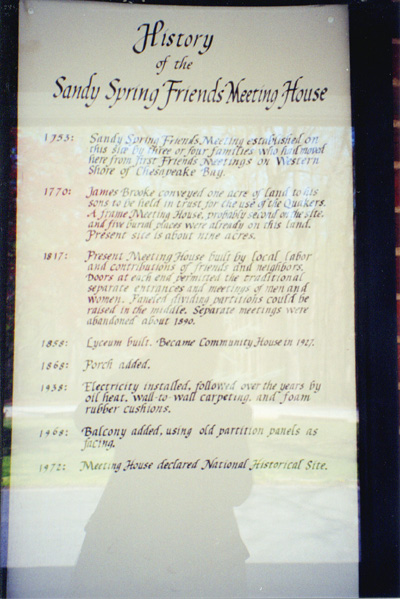 History
of the
Sandy Spring Friends Meeting House
1753: Sandy Spring Friends Meeting established on
this site by three or four families who had moved
here from first Friends Meetings on Western
Shore of Chesapeake Bay.
1770: James Brooke conveyed one acre of land to his
sons to be held in trust for the use of the Quakers.
A frame Meeting House, probably second on the site,
and five burial places were already on this land.
Present site is about nine acres.
1817: Present Meeting House built by local labor
and contributions of friends and neighbors.
Doors at each end permitted the traditional
separate entrances and meetings of men and
women. Paneled dividing partitions could be
raised in the middle. Separate meetings were
abandoned about 1890.
1858: Lyceum built. Became Community House in 1927.
1868: Porch added.
1938: Electricity installed, followed over the years by
oil heat, wall-to-wall carpeting, and foam
rubber cushions.
1968: Balcony added, using old partition panels as
facing.
1972: Meeting House declared National Historical Site.